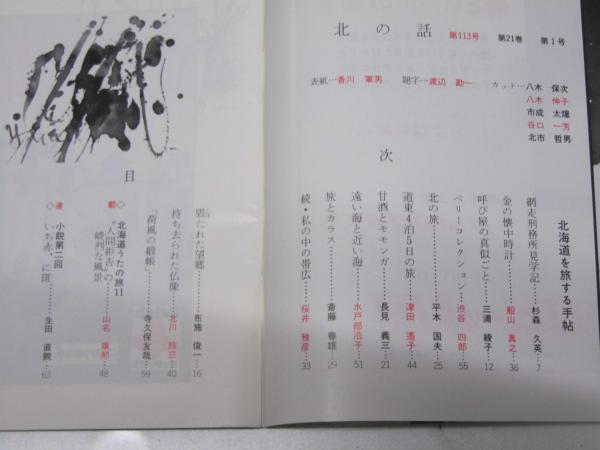 北の話 第113号 第21巻 第1号
表紙…香川 軍男 題字…渡辺 勘一 カット…八木 保次
八木 伸子
市成 太煌
谷口 一芳
北市 哲男
目次
北海道を旅する手帖
網走刑務所見学記……杉森 久英…7
金の懐中時計……船山 真之…36
呼び屋の真似ごと……三浦 綾子…12
ペリーコレクション……渋谷 四郎…55
北の旅……平木 国夫…25
道東4泊5日の旅……津田 遙子…44
甘酒とモモンガ……長見 義三…21
遠い海と近い海……水戸部浩子…51
旅とカラス……斎藤 春雄…29
続・私の中の帯広……桜井 雅彦…33
毀たれた望郷……布施 俊一…16
持ち去られた仏像……北川 …40
「荷風の緞帳」……寺久保友哉…59
◇連載◇
北海道うたの旅11
"人間拒否"の
峻烈な風景……山名 康郎…48
小説第二回
いち赤、に斑……生田 直親…63